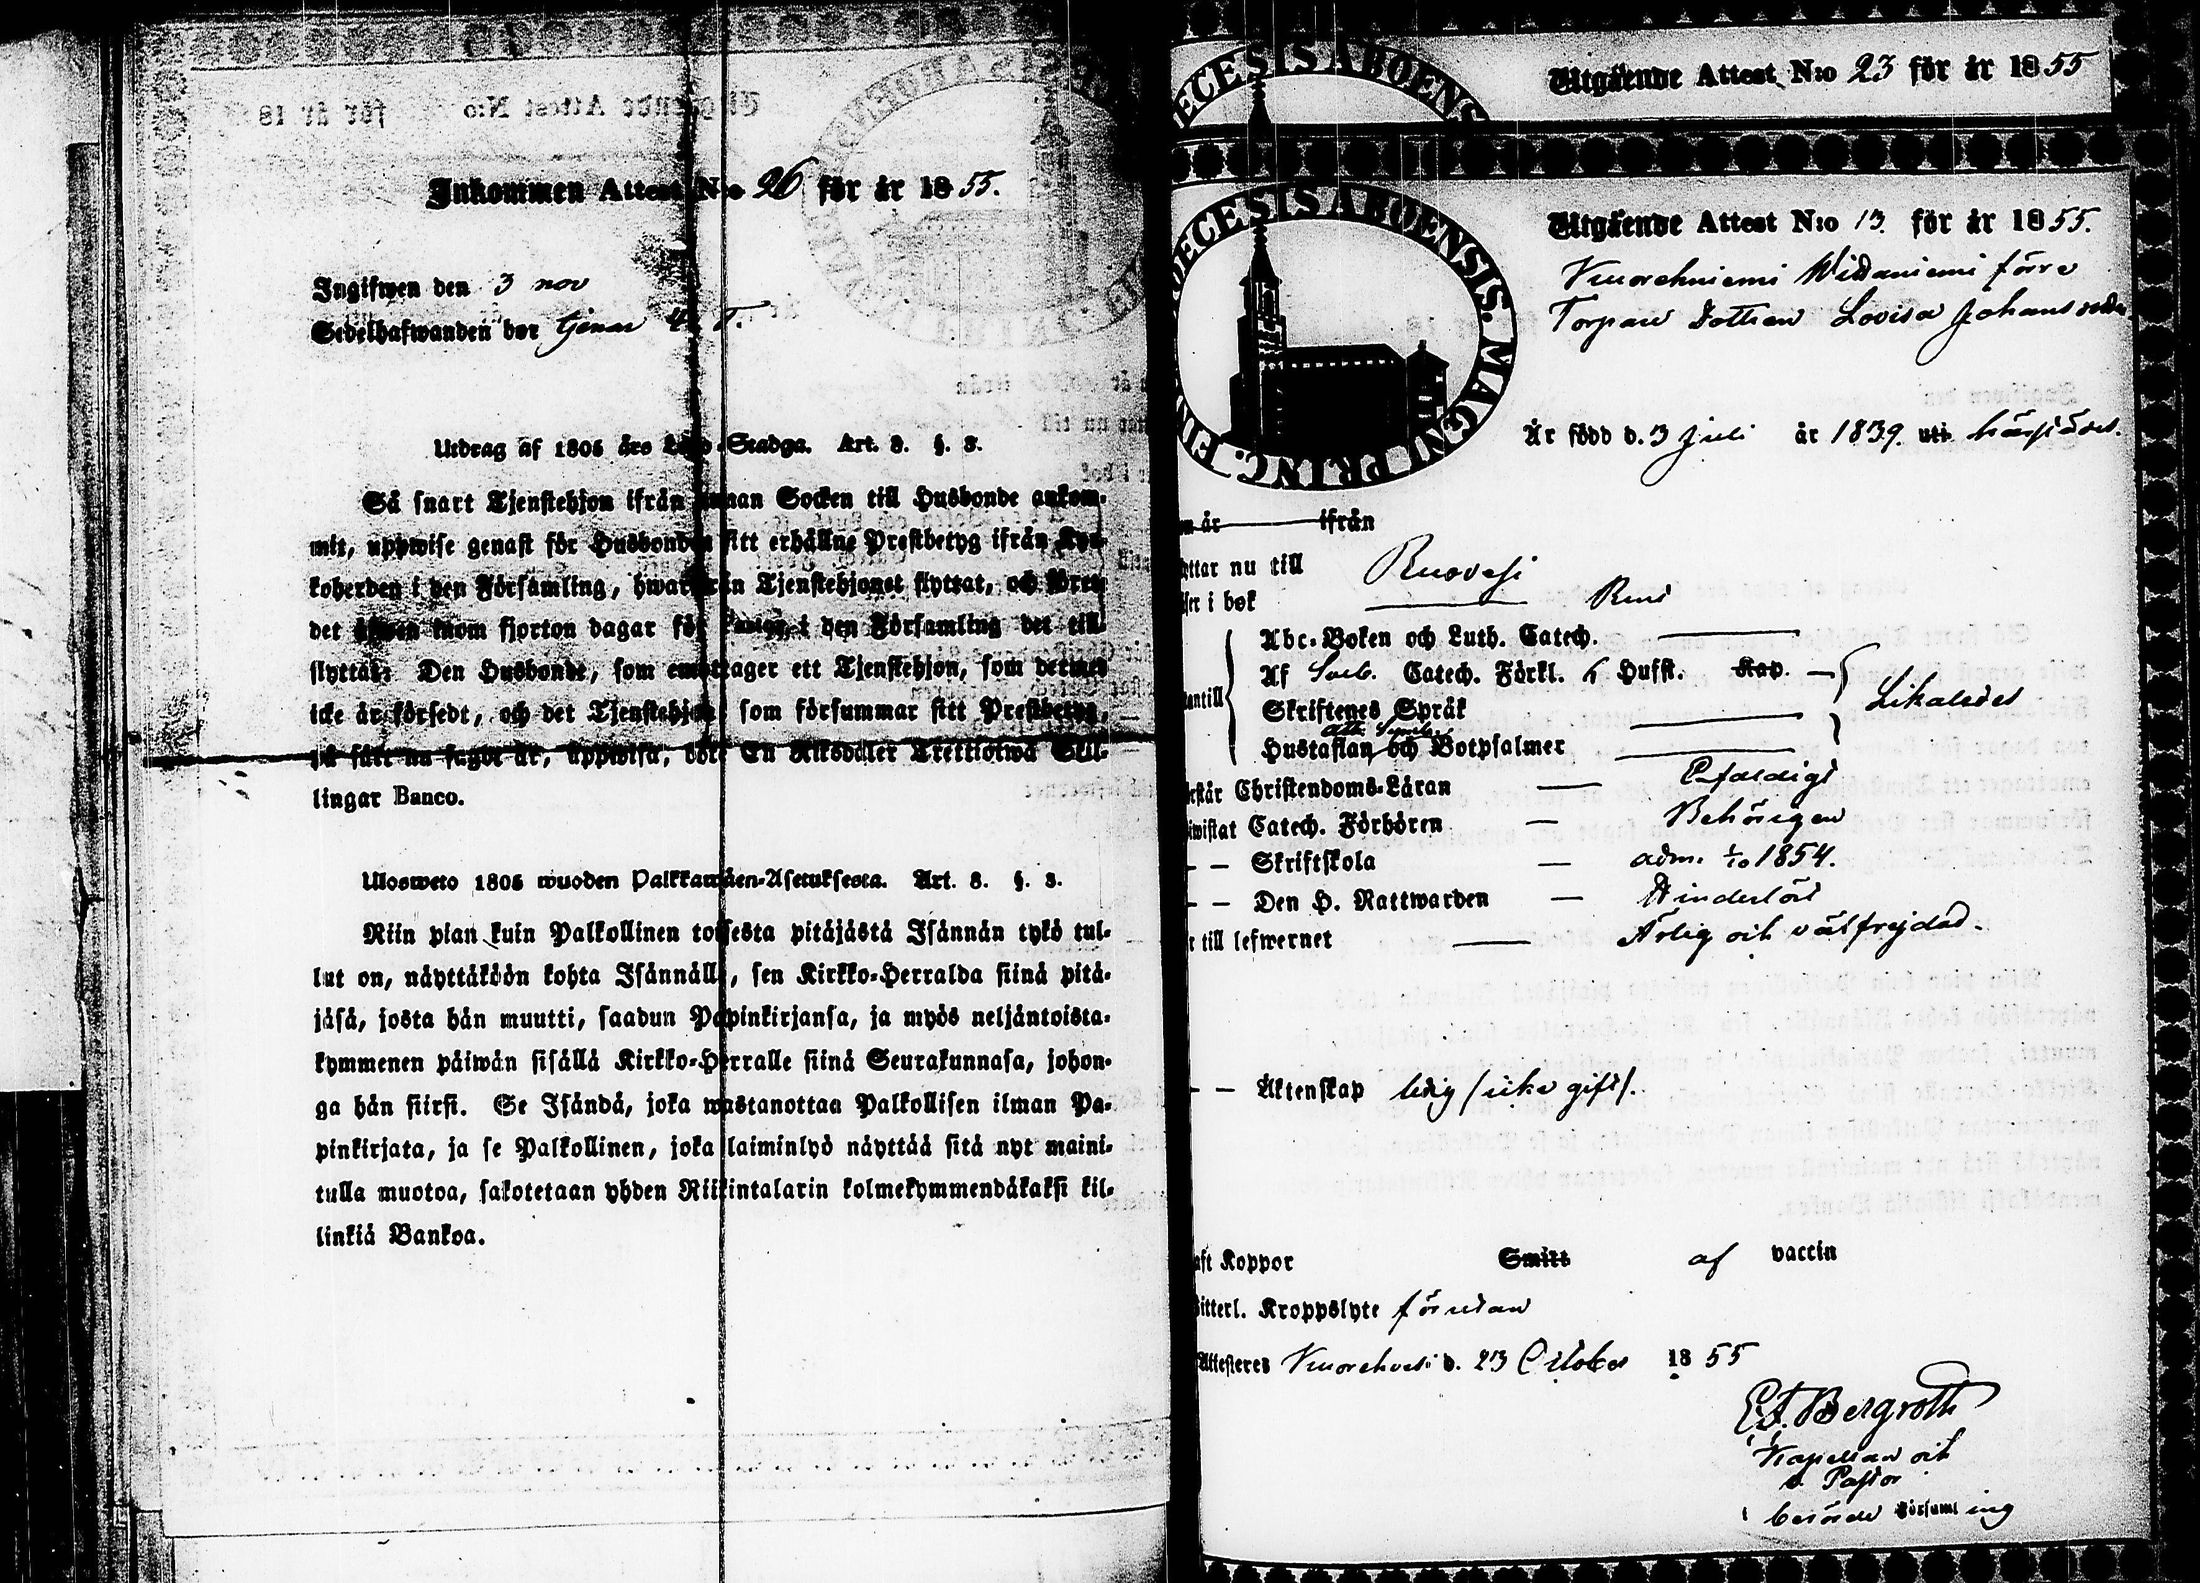 Inkommen Attest N:o 26 för år 1855.
Ingifwen den 3 nov
Sedelhafwanden bor tjenar
Utdrag af 1805 års Lego-Stadga. Art. 8. §. 3.
Så snart Tjenstehjon ifrån annan Socken till Husbonde ankom-
mit, uppwise genast för Husbonden sitt erhållne Prestbetyg ifrån Kyr-
koherden i den Församling, hwarifrån Tjenstehjonet flyttat, och
det inom fjorton dagar för i den Församling det till
flyttat. Den Husbonde, som emottager ett Tjenstehjon, som dermed
icke är försedt, och det Tjenstehjon, som försummar sitt Prestbetyg,
på sätt nu sagdt är, uppwisa, böte En Riksdaler Trettiotwå Skil-
lingar Banco.
Ulosweto 1805 wuoden Palkkawäen-Asetuksesta. Art. 8. §. 3.
Niin pian kuin Palkollinen toisesta pitäjästä Isännän tykö tul-
lut on, näyttäköön kohta Isännälle, sen Kirkko-Herralda siinä pitä-
jäsä, josta hän muutti, saadun Papinkirjansa, ja myös neljäntoista-
kymmenen päiwän sisällä Kirkko-Herralle siinä Seurakunnasa, johon-
ga hän siirsi. Se Isändä, joka wastanottaa Palkollisen ilman Pa-
pinkirjata, ja se Palkollinen, joka laiminlyö näyttää sitä nyt maini-
tulla muotoa, sakotetaan yhden Riikintalarin kolmekymmendäkaksi kil-
linkiä Bankoa.
ECESIS ABOENS
Utgående Attest N:o 23 för år 1855
DECESIS ABOENSIS. MAGNI PRINC. FIN
Utgående Attest N:o 13. för år 1855.
Kuorehniemi Widaniemi förre
Torpare Dottren Lovisa Johansdotter
Är född d. 3 Juli år 1839. uti härstädes.
år ifrån
flyttar nu till Ruovesi
läser i bok Rent
Abc-Boken och Luth. Catech.
Af Sveb. Catech. Förkl. Hufst. Kap.
Likaledes
Skriftenes Språk
Ath. Symb.
Hustaflan och Botpsalmer
förstår Christendoms-Läran Enfaldigt
bewistat Catech. Förhören Behörigen
– – Skriftskola adm. 1/10 1854.
– – Den H. Nattwarden Hinderlöst
är till lefwernet Ärlig och välfrejdad.
– – Äktenskap ledig (icke gift).
haft Koppor Smitt af vaccin
Bitterl. Kroppslyte förutan
Attesteres Kuorehvesi d. 23 October 1855
E. F. Bergroth
Kapellan och
v. Pastor
berörde Församling